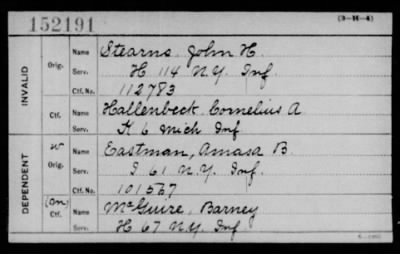 152191 (3-14-4)
INVALID
Orig. Name Stearns, John H.
Serv. H 114 N.Y. Inf.
Ctf. No. 112783
Ctf. Name Hallenbeck, Cornelius A
Serv. K 6 Mich Inf
DEPENDENT
W Orig. Name Eastman, Amasa B
Serv. I 61 N.Y. Inf.
Ctf. No. 101567
(m) Ctf. Name McGuire, Barney
Serv. H 67 N.Y. Inf